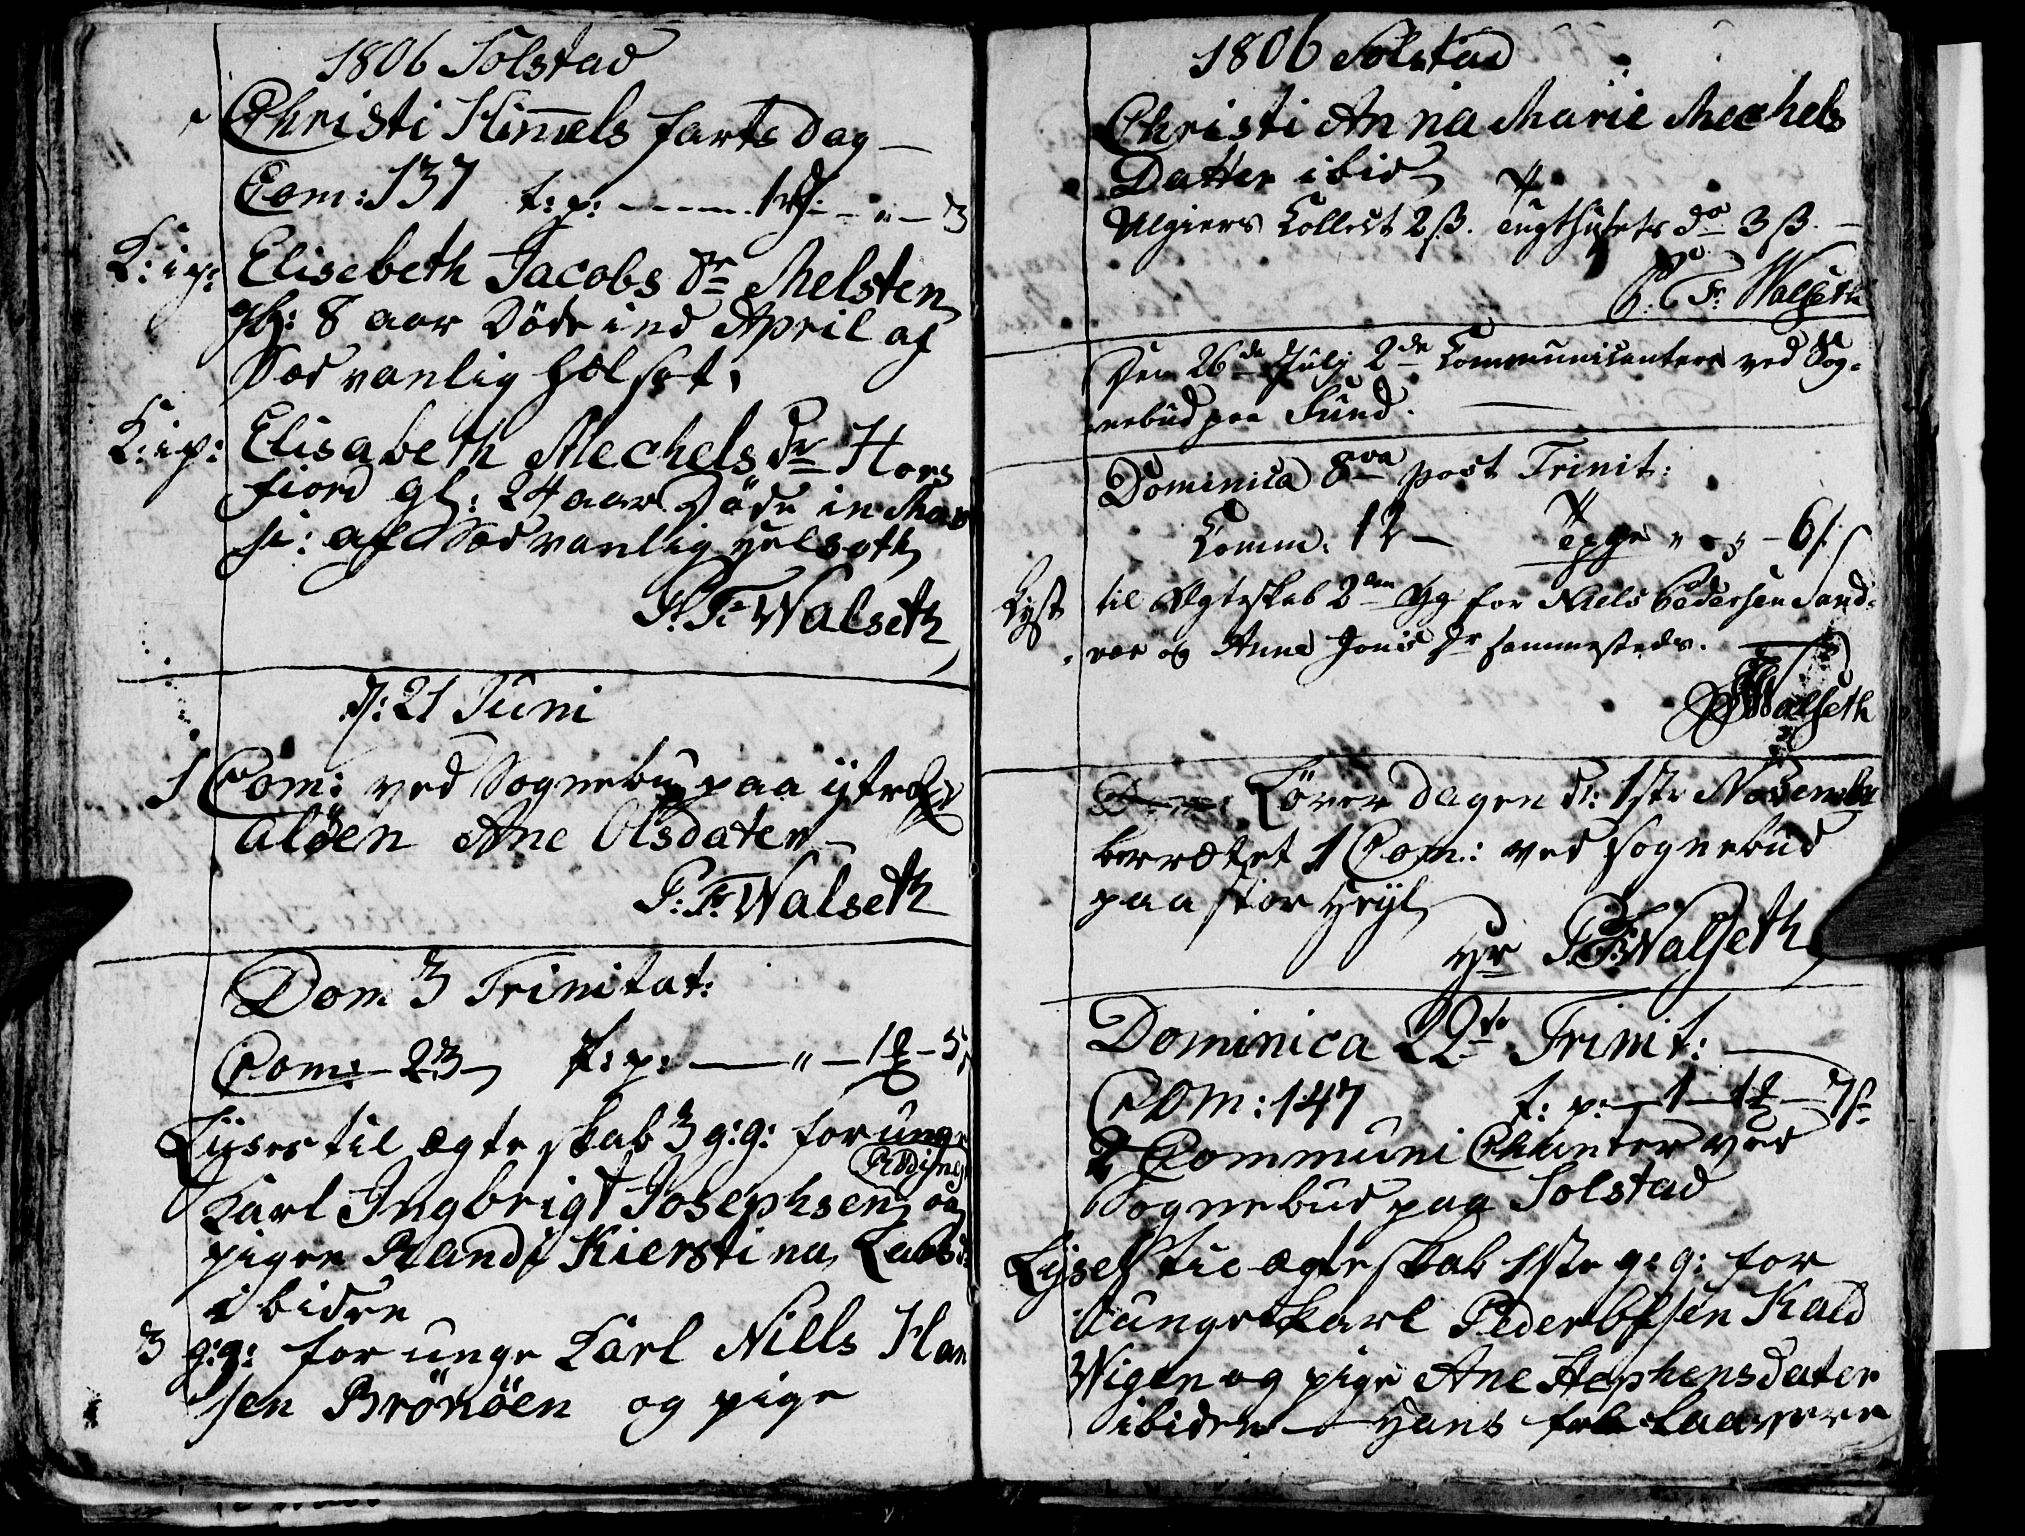 1806 Solstad
Christi Himels farts Dag
Com: 137 t: p: 1 " 3
K: i p: Elisebeth Jacobs dr Melsten
gl: 8 aar Döde ind April af
Sæd vanlig helset
K: i p: Elisabeth Mechels dr Hors
fiord gl: 24 aar Döde in Mar
si: af Sædvanlig helseth
P. F. Walseth
d: 21 Juni
1 Com: ved Sognebu paa ytre
alöen Ane Olsdater
P: F: Walseth
Dom 3 Trinitat:
Com: 23 T: p: " 12 - 5
Lÿses til ægte skab 3 g: g: for unge
Rödÿne
Karl Ingbrigt Josephsen og
pigen Randi Kierstina Labs
ibiden
3 g: g: for unge Karl Niels Han
sen Brönöen og pige
1806 Solstad
Christi Anna Marie Mechels
Datter ibid
Algiers Collect 2 ß. Tugthusets do 3 ß.
P. F. Walseth
Den 26de July 2de Communicanter ved Sog-
nebud paa Sund.
Dominica 8va post Trinit:
Comm. 12 Tppe " - 3 - 6 ß
Lyst til Ægteskab 2den Gg for Niels Pedersen Sand-
vær og Anne Jonis dr sammesteds.
Walseth
Löverdagen d: 1ste November
berrættet 1 Com: ved Sognebud
paa stor
hr P F Walseth
Dominica 22de Trinit:
Com: 147 t: p: 1 - 12 - 7 ß
2 Communi Chanter ved
Sognebud paa Solstad
Lÿsest til ægte skab 1ste g: g: for
ungekarl Peder Olsen Kald
Wigen og pige Ane Stephensdater
ibiden Hans